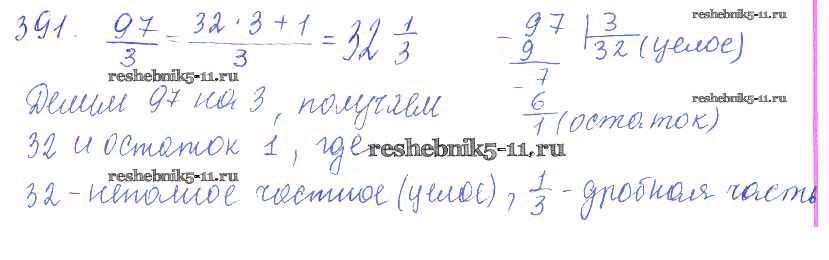 391. 97/3 = 32·3+1/3 = 32 1/3
reshebnik5-11.ru
- 97 | 3
9 32 (целое)
- 7
6
1 (остаток)
reshebnik5-11.ru
reshebnik5-11.ru
Делим 97 на 3, получаем
32 и остаток 1, где
reshebnik5-11.ru
32 - неполное частное (целое), 1/3 - дробная часть
reshebnik5-11.ru